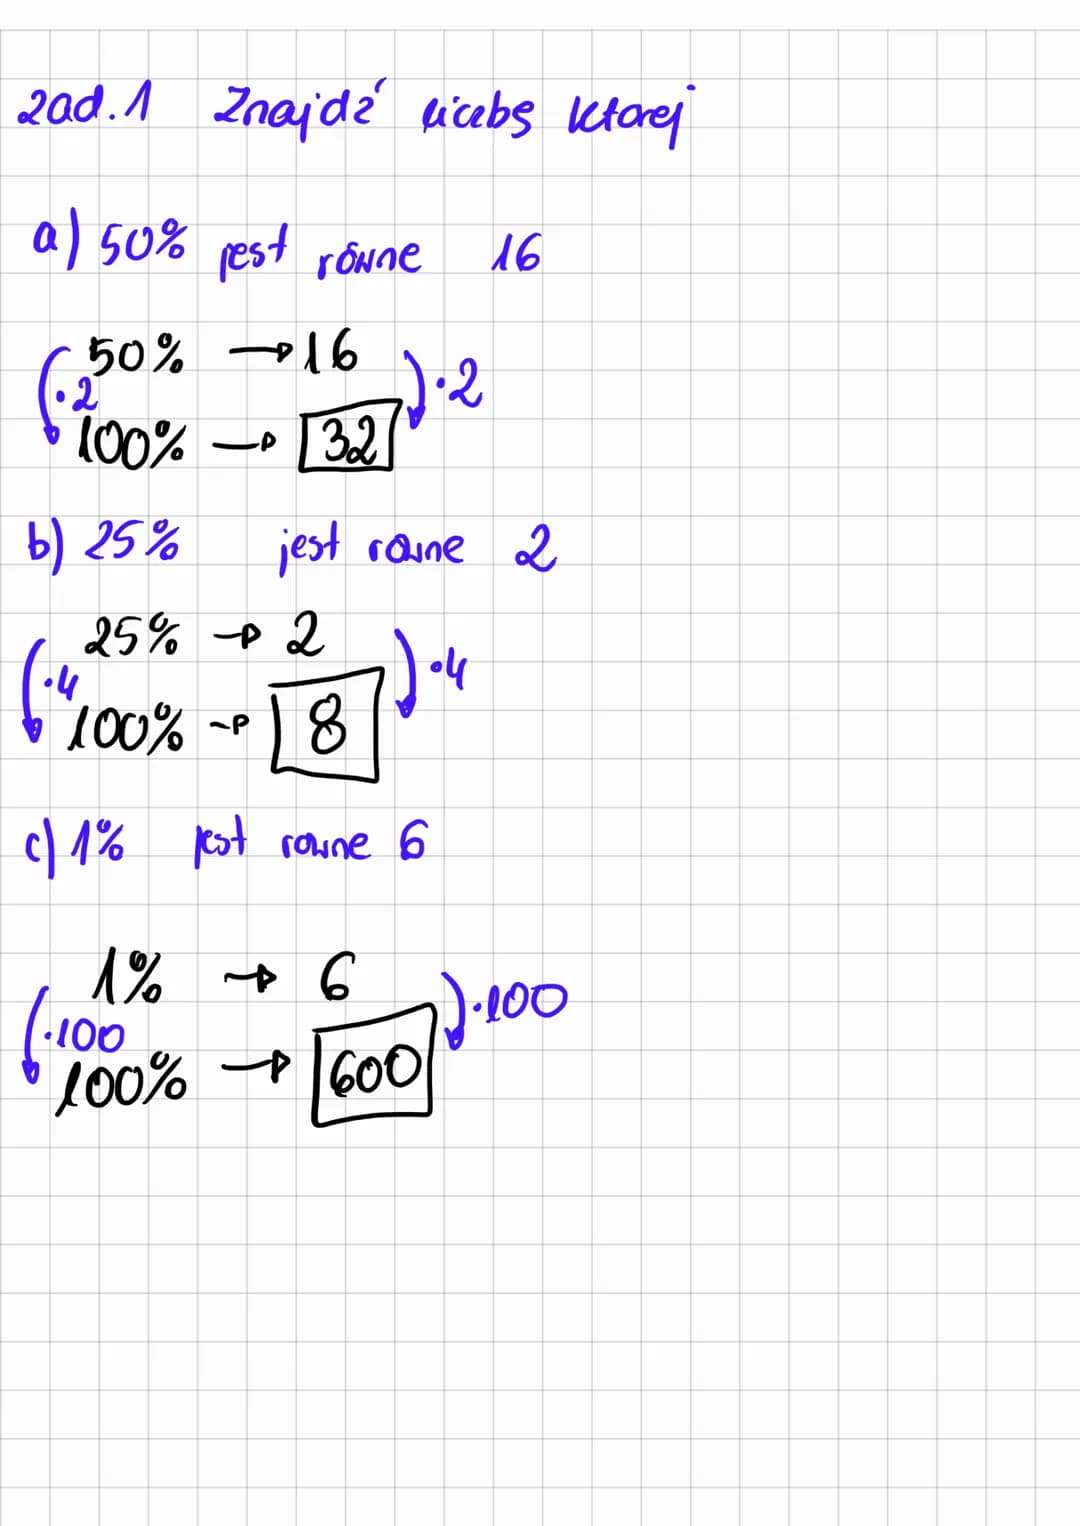 zad.1 Znajdź liczbę której
a) 50% jest równe 16
50% → 16
·2 ·2
100% → 32
b) 25% jest rowne 2
25% → 2
·4 ·4
100% → 8
c) 1% jest rowne 6
1% → 6
·100 ·100
100% → 600